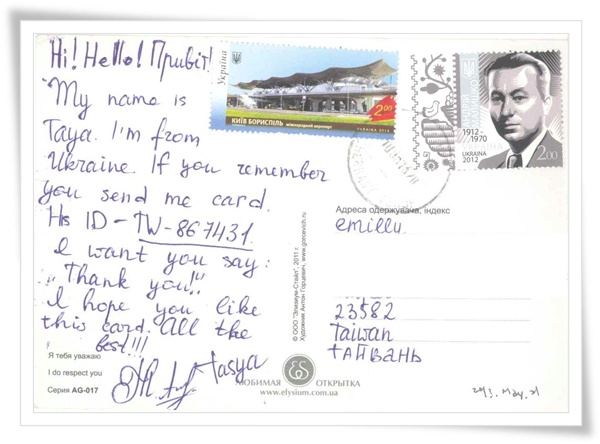 Hi! Hello! Привіт!
My name is
Taya. I'm from
Ukraine. If you remember
you send me card.
His ID - TW-867431.
I want you say:
„Thank you!"
I hope you like
this card. All the
best!!!
Tasya
Я тебя уважаю
I do respect you
Серия AG-017
Україна
2.00
КИЇВ БОРИСПІЛЬ
МІЖНАРОДНИЙ АЕРОПОРТ
UKRAINA 2012
1912-
1970
UKRAINA
2012
2.00
Адреса одержувача, індекс
emillu
23582
Taiwan
ТАЙВАНЬ
© ООО "Элизиум-Стайл", 2011 г.
Художник Антон Горцевич, www.gorcevich.ru
ES
ЛЮБИМАЯ ОТКРЫТКА
www.elysium.com.ua
2013. May. 21